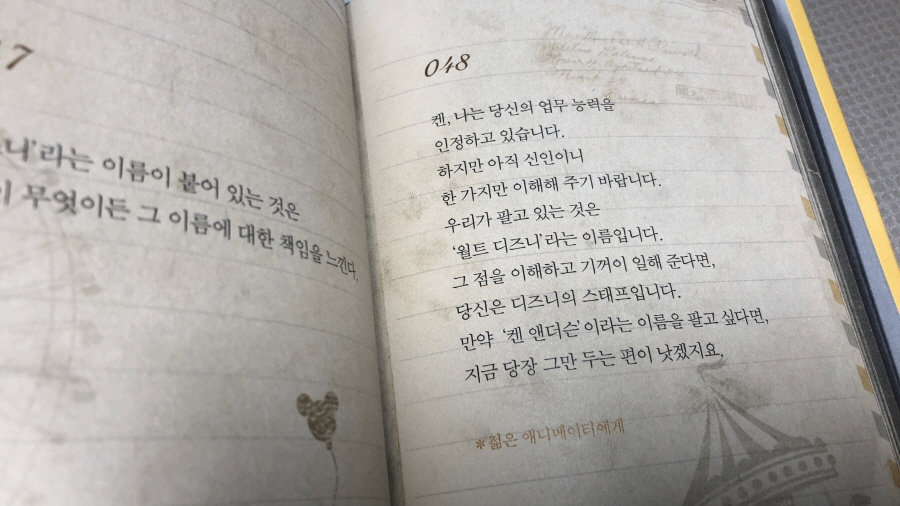 7
니'라는 이름이 붙어 있는 것은
무엇이든 그 이름에 대한 책임을 느낀다.
048
켄, 나는 당신의 업무 능력을
인정하고 있습니다.
하지만 아직 신인이니
한 가지만 이해해 주기 바랍니다.
우리가 팔고 있는 것은
'월트 디즈니'라는 이름입니다.
그 점을 이해하고 기꺼이 일해 준다면,
당신은 디즈니의 스태프입니다.
만약 '켄 앤더슨'이라는 이름을 팔고 싶다면,
지금 당장 그만 두는 편이 낫겠지요.
*젊은 애니메이터에게